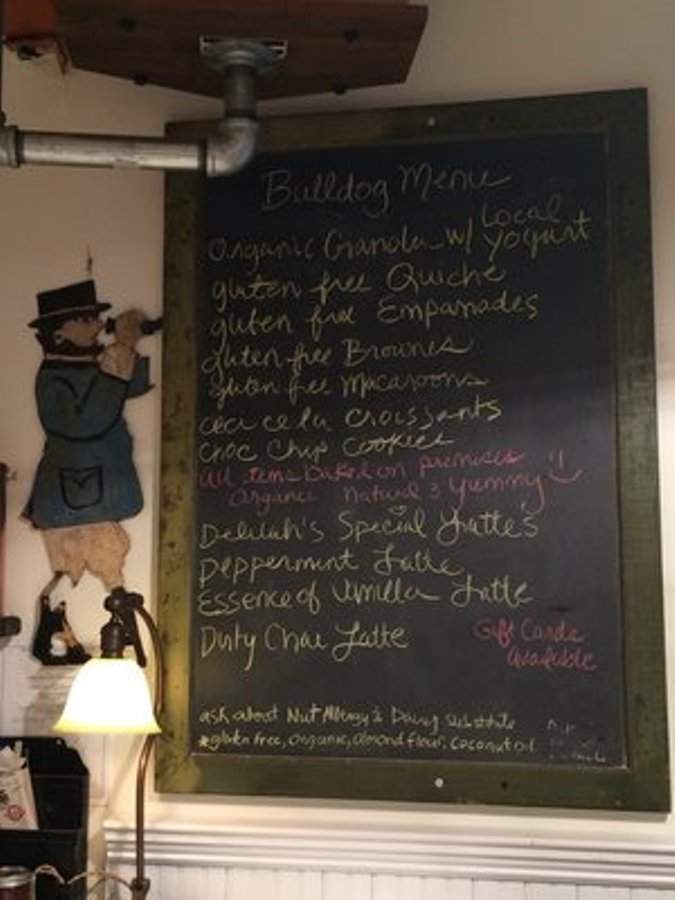 Bulldog Menu
Organic Granola w/ Local Yogurt
gluten free Quiche
gluten free Empanades
gluten free Brownies
gluten free Macaroons
croissants
Choc Chip Cookies
all items baked on premises
organic Natural & Yummy
Delilah's Special Latte's
peppermint Latte
Essence of Vanilla Latte
Dirty Chai Latte
Gift Cards
available
ask about Nut Allergy & Dairy substitute
*gluten free, organic, almond flour, coconut oil